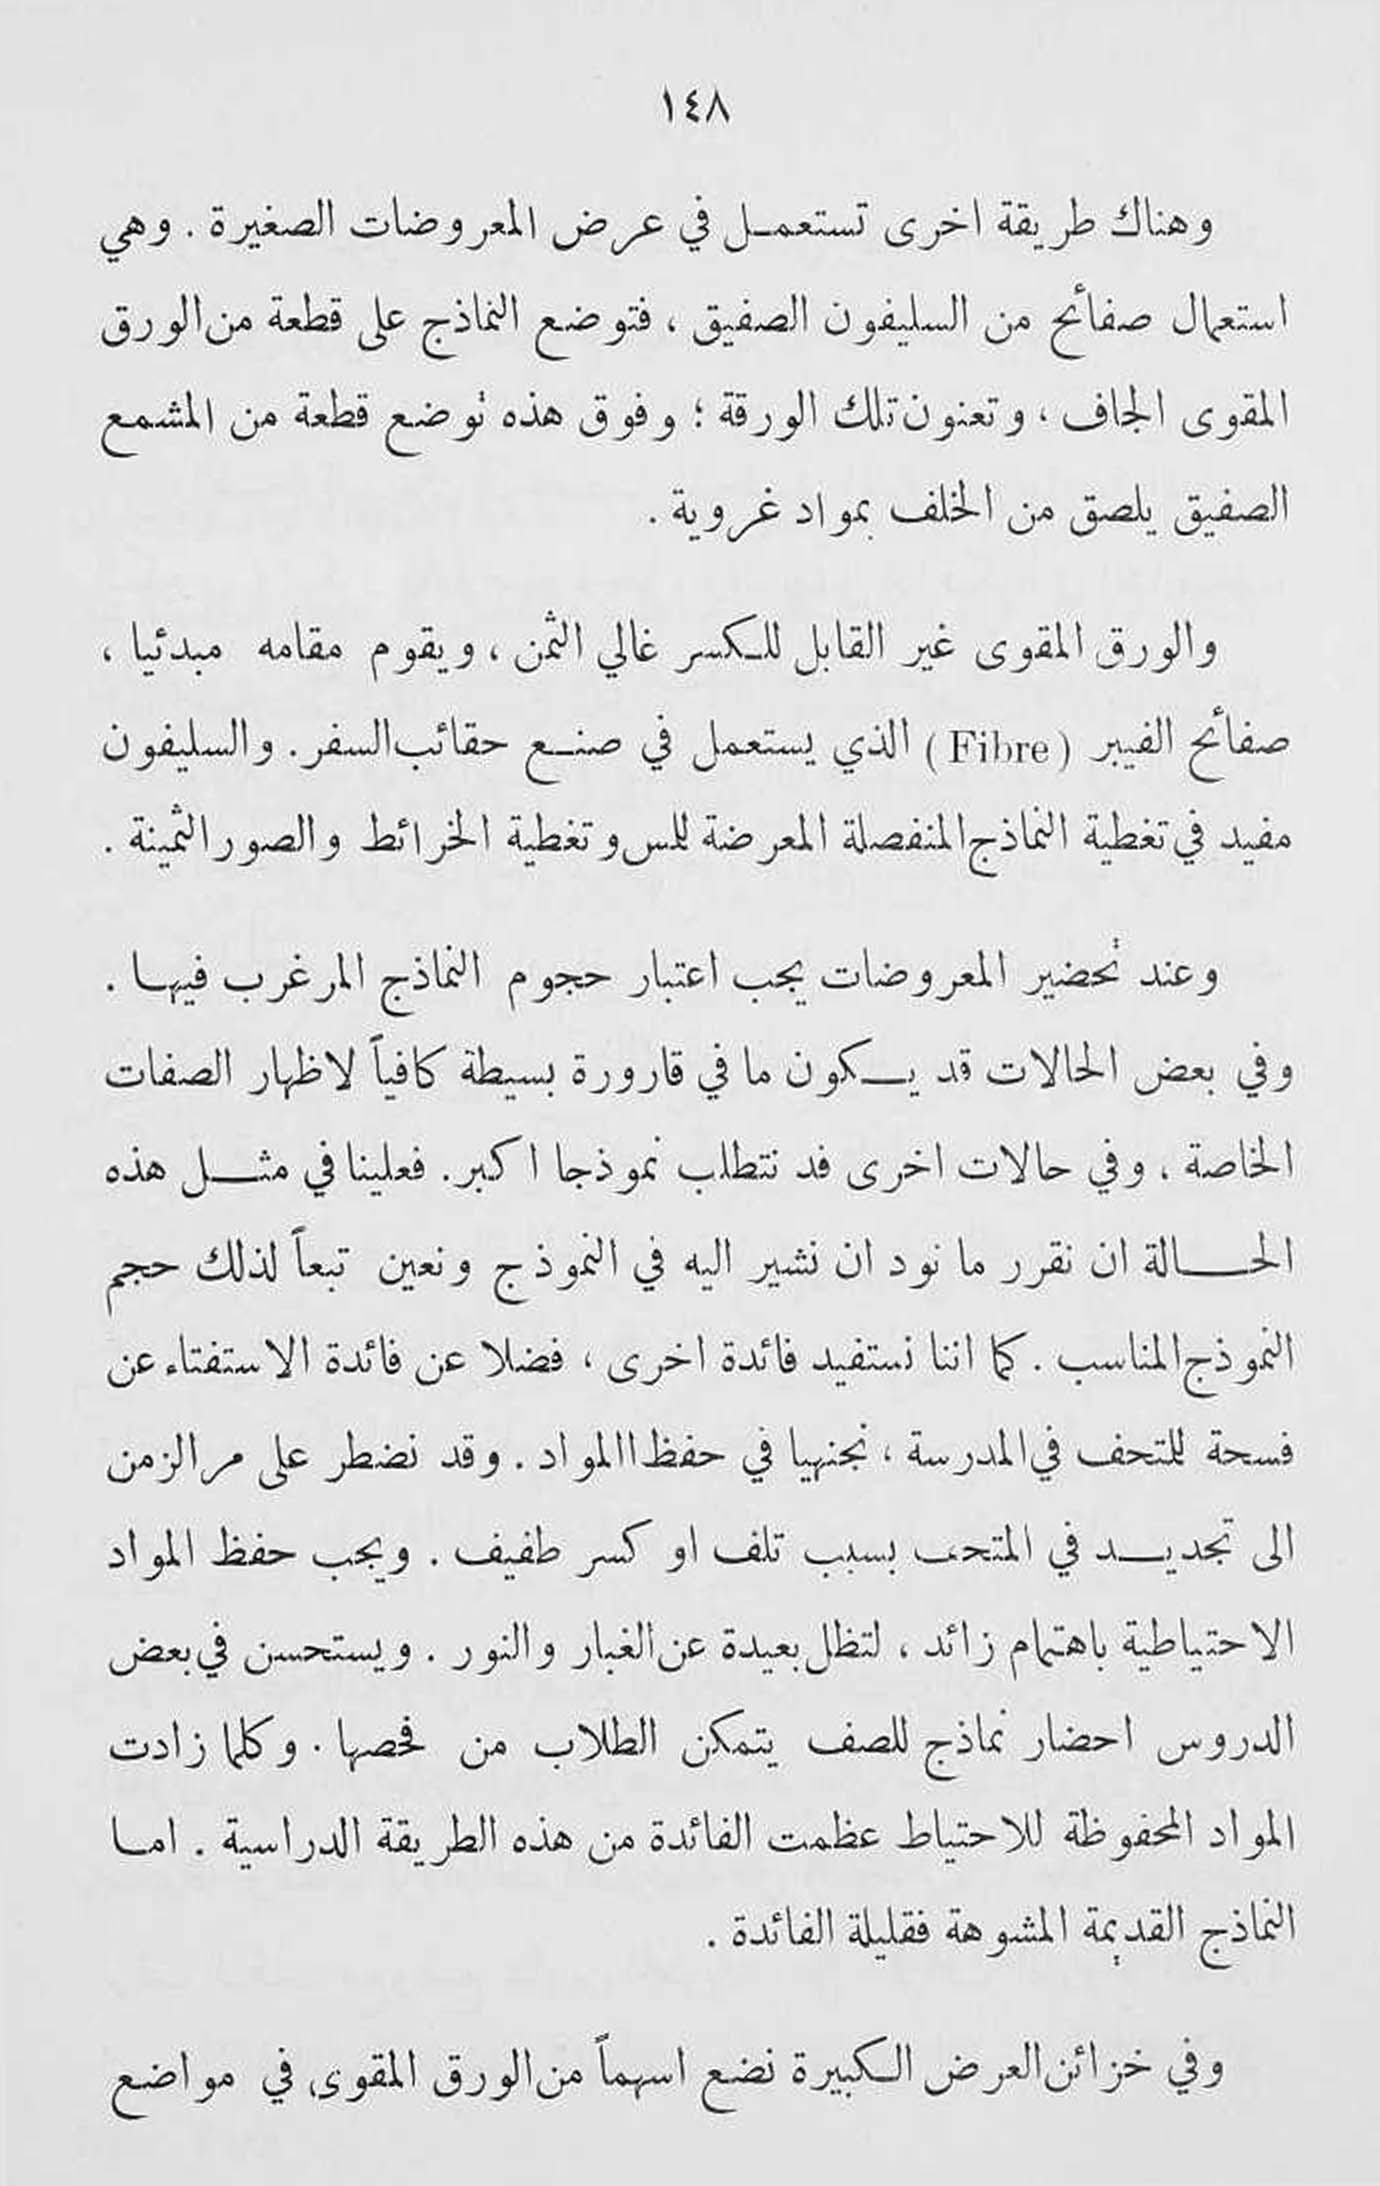 ١٤٨
وهناك طريقة اخرى تستعمل في عرض المعروضات الصغيرة . وهي
استعمال صفائح من السليفون الصفيق ، فتوضع النماذج على قطعة من الورق
المقوى الجاف ، وتعنون تلك الورقة ؛ وفوق هذه توضع قطعة من المشمع
الصفيق يلصق من الخلف بمواد غروية .
والورق المقوى غير القابل للكسر غالي الثمن ، ويقوم مقامه مبدئيا ،
صفائح الفيبر ( Fibre ) الذي يستعمل في صنع حقائب السفر . والسليفون
مفيد في تغطية النماذج المنفصلة المعرضة للمس وتغطية الخرائط والصور الثمينة .
وعند تحضير المعروضات يجب اعتبار حجوم النماذج المرغرب فيها .
وفي بعض الحالات قد يكون ما في قارورة بسيطة كافياً لاظهار الصفات
الخاصة ، وفي حالات اخرى فد نتطلب نموذجا اكبر . فعلينا في مثل هذه
الحالة ان نقرر ما نود ان نشير اليه في النموذج ونعين تبعاً لذلك حجم
النموذج المناسب . كما اننا نستفيد فائدة اخرى ، فضلا عن فائدة الاستفتاء عن
فسحة للتحف في المدرسة ، نجنهيا في حفظ االمواد . وقد نضطر على مر الزمن
الى تجديد في المتحف بسبب تلف او كسر طفيف . ويجب حفظ المواد
الاحتياطية باهتمام زائد ، لتظل بعيدة عن الغبار والنور . ويستحسن في بعض
الدروس احضار نماذج للصف يتمكن الطلاب من فحصها . وكلما زادت
المواد المحفوظة للاحتياط عظمت الفائدة من هذه الطريقة الدراسية . اما
النماذج القديمة المشوهة فقليلة الفائدة .
وفي خزائن العرض الكبيرة نضع اسهماً من الورق المقوى في مواضع